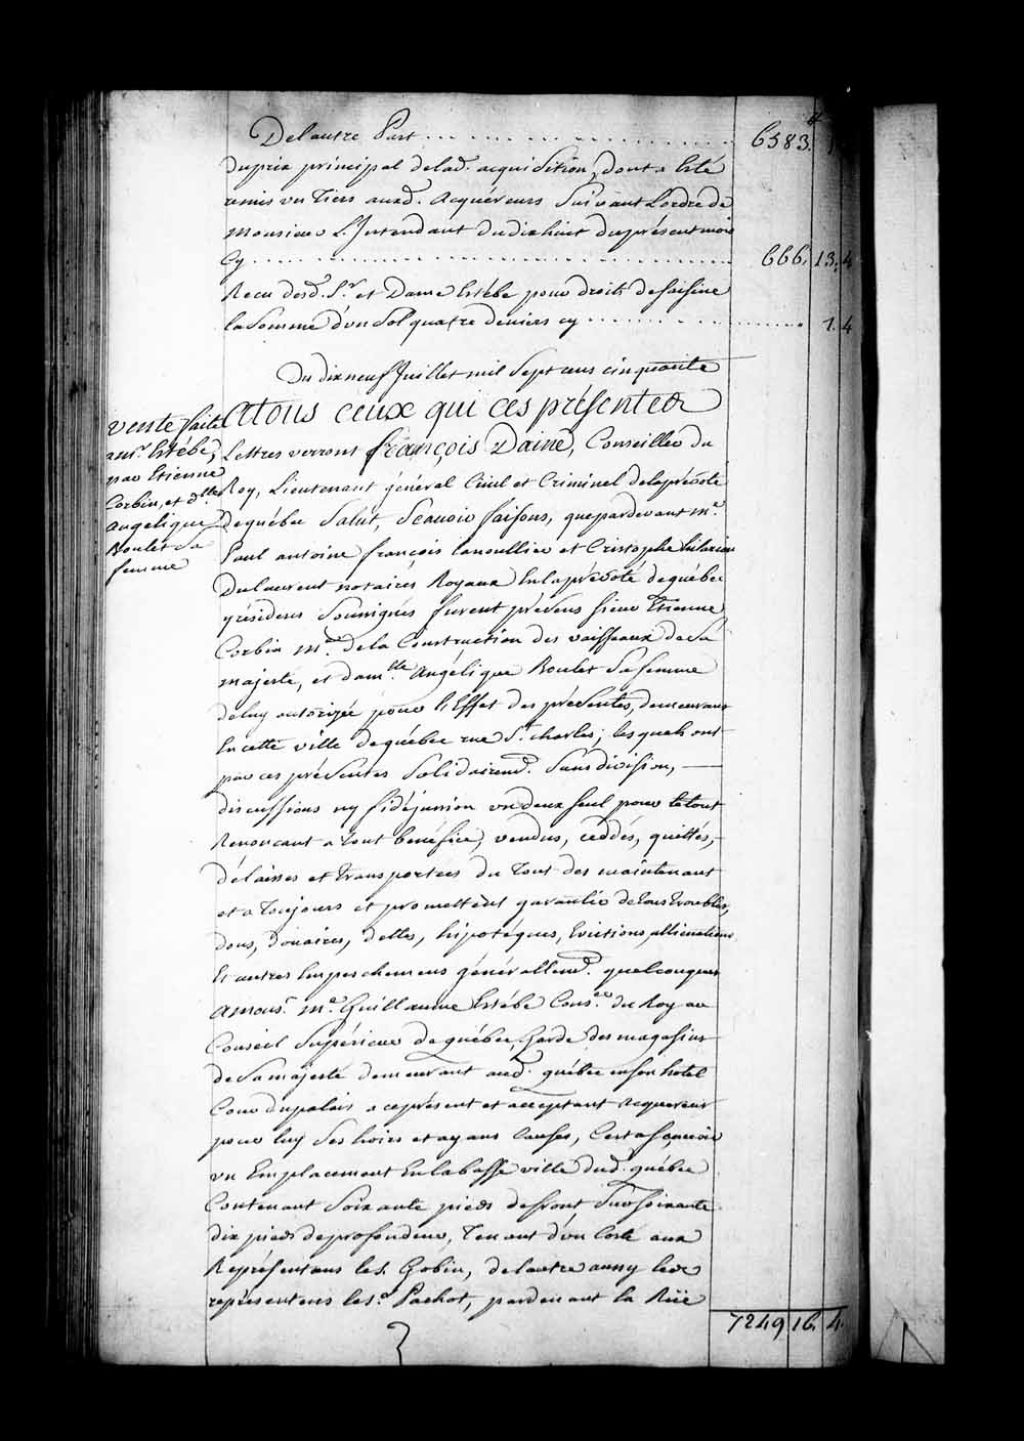 De l'autre Part . . . . . . . . . . 6583.
du prix principal de lad. acquisition, dont a Esté
remis un Tiers auxd. Acquéreurs Suivant L'ordre de
Monsieur L'Intendant du dixhuit du présent mois
Cy . . . . . . . . . . 666. 13. 4
Recu desd. Sr. et Dame Estèbe pour droits de saisine
la Somme d'un Sol quatre deniers cy . . . . . . . . 1. 4
Du dix neuf Juillet mil Sept cens cinquante
vente faite
au sr. Estébe,
par Etienne
Corbin, et dlle.
angelique
Roulet Sa
femme
A tous ceux qui ces présentes
Lettres verront françois Daine, Conseiller du
Roy, Lieutenant général Civil et Criminel de la prévosté
de québec Salut, Scavoir faisons, que pardevant me.
Paul antoine françois Lanoullier et Cristophe hilarion
Dulaurent notaires Royaux En la prévosté de québec
y résidens Soussignés furent présens Sieur Etienne
Corbin me. de la Construction des vaisseaux de Sa
majesté, et damlle. Angélique Roulet Sa femme
de luy autorizée pour l'Effet des présentes, demeurans
En cette ville de québec rue St. charles; lesquels ont
par ces présentes Solidairemt. Sans division,
discussions ny fidéjussion un d'eux seul pour le tout
Renoncant a tout bénéfice, vendus, ceddés, quittés,
délaissés et transportees du Tout dès maintenant
et a Toujours et promettent garantir de Tous troubles,
dons, douaires, dettes, hipotéques, Evictions, allienations
Et autres Empeschemens généralemt. quelconques
a mons. me. Guillaume Estébe Conser. du Roy au
Conseil Supérieur de québec, Garde des magasins
de Sa majesté demeurant aud. québec en son hotel
Cour du palais a ce présent et acceptant acquereur
pour luy Ses hoirs et ayans Causes, C'est a sçavoir
un Emplacement En la basse ville dud. québec
Contenant Soixante pieds de front, Sur soixante
dix pieds de profondeur, Tenant d'un Costé aux
Représentans le S. Gobin, de l'autre aussy les
représentens le Sr. Pachot, pardevant la Rüe
7249 16. 4.